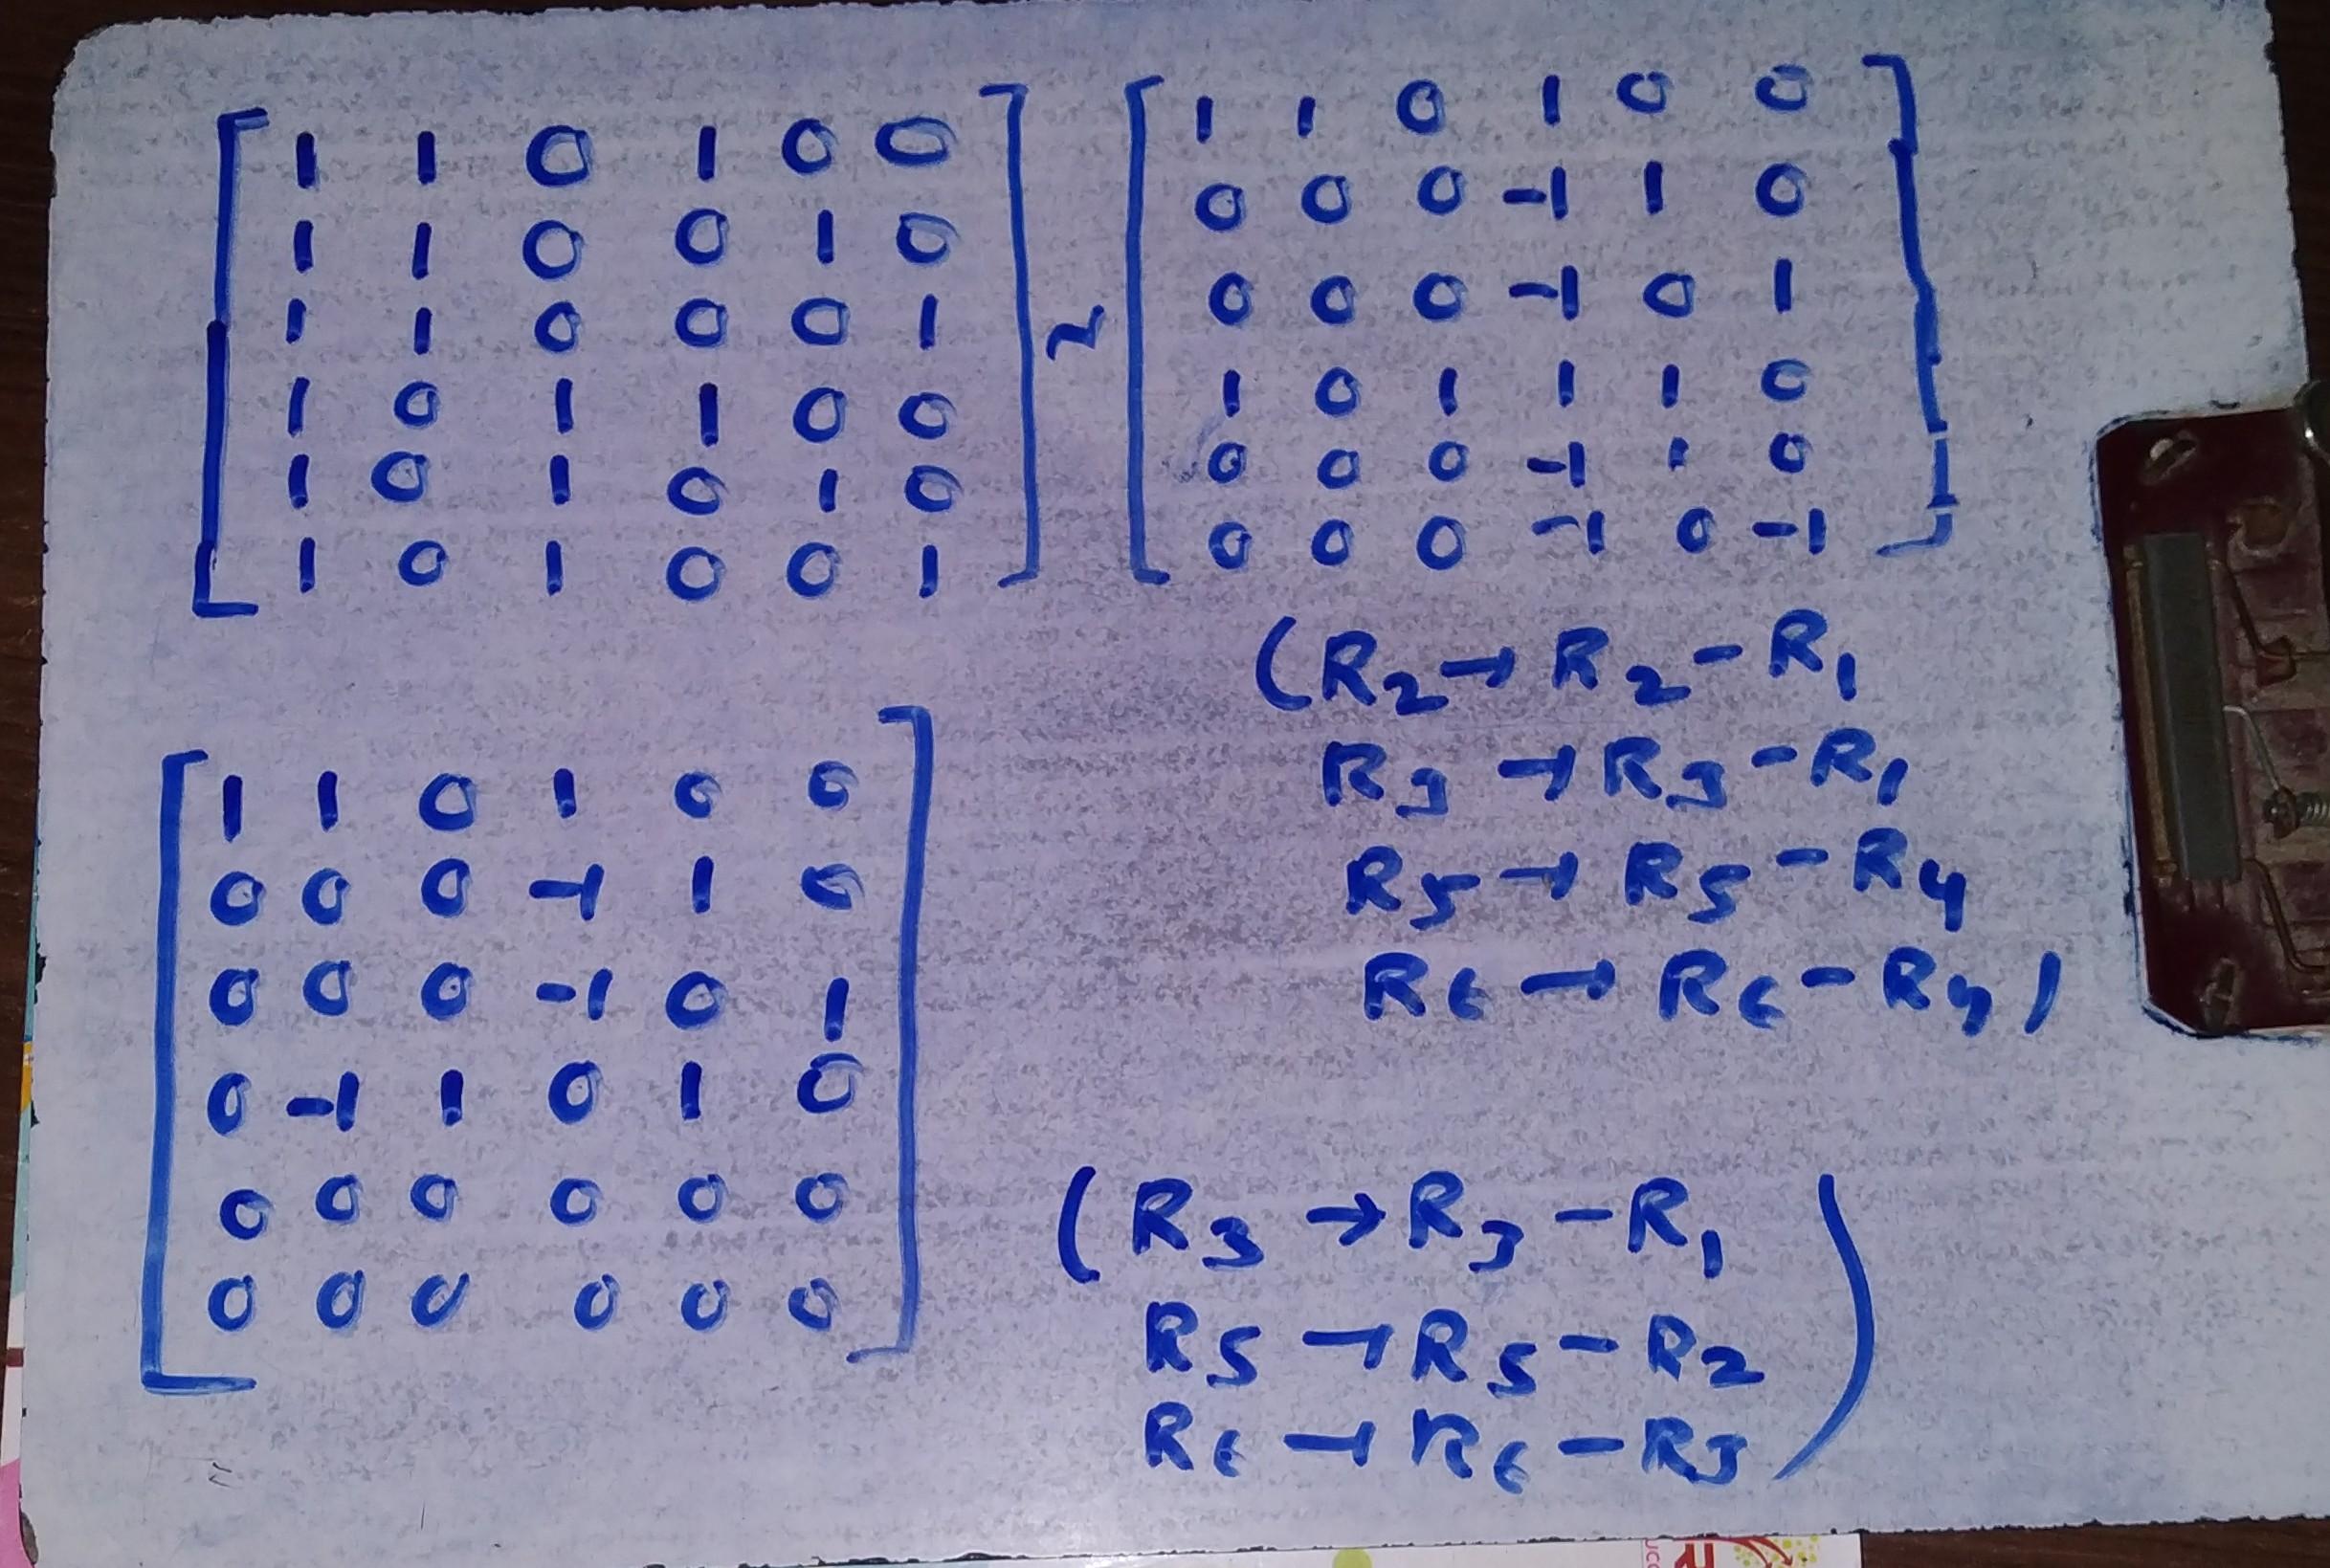 [ 1 1 0 1 0 0
1 1 0 0 1 0
1 1 0 0 0 1
1 0 1 1 0 0
1 0 1 0 1 0
1 0 1 0 0 1 ]
~
[ 1 1 0 1 0 0
0 0 0 -1 1 0
0 0 0 -1 0 1
1 0 1 1 1 0
0 0 0 -1 1 0
0 0 0 -1 0 -1 ]
(R2 → R2 - R1
R3 → R3 - R1
R5 → R5 - R4
R6 → R6 - R4)
[ 1 1 0 1 0 0
0 0 0 -1 1 0
0 0 0 -1 0 1
0 -1 1 0 1 0
0 0 0 0 0 0
0 0 0 0 0 0 ]
(R3 → R3 - R1
R5 → R5 - R2
R6 → R6 - R3)